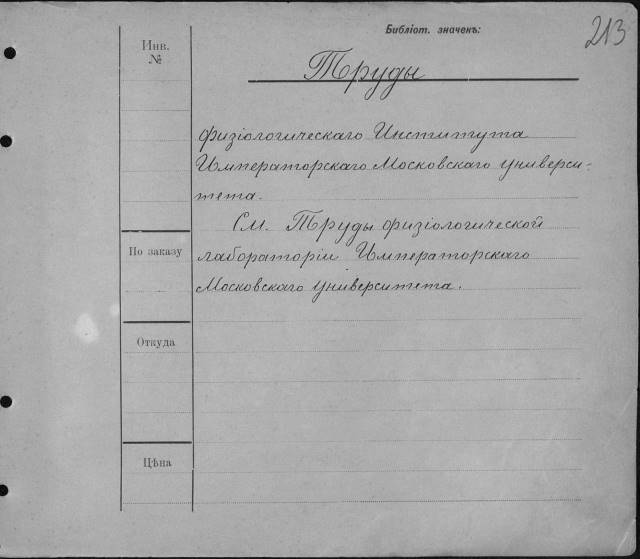 Библіот. значен:
213
Инв.
№
Труды
физіологическаго Института
Императорскаго Московскаго универси-
тета.
См. Труды физіологической
лабораторіи Императорскаго
Московскаго университета.
По заказу
Откуда
Цѣна